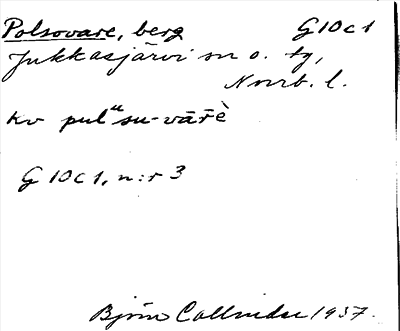 Polsovare, berg G10c1
Jukkasjärvi sn o. tg,
Norrb. l.
kv pulᵘsu-vārè
G 10c1, n:r 3
Björn Collinder 1937.